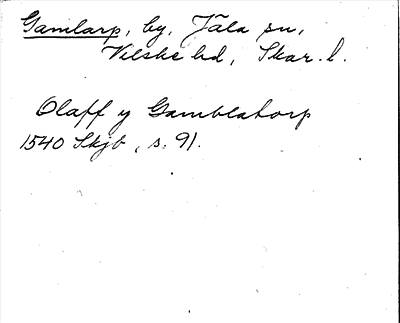 Gamlarp, by, Jäla sn,
Vilske hd, Skar. l.
Olaff y Gamblatorp
1540 Skjb, s. 91.